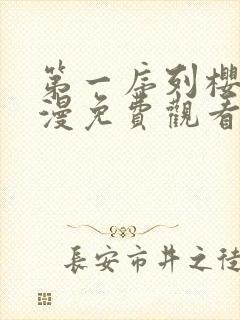 第一序列櫻
漫免費觀看
長安市井之徒